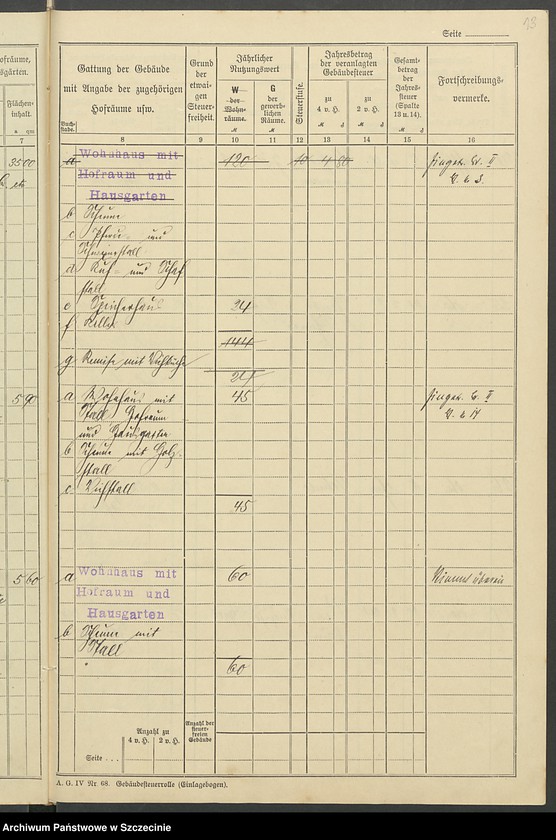 19
Seite
ofräume,
sgärten.
Flächen-
inhalt.
a qm
7
3500
590
560
Buch-
stabe.
Gattung der Gebäude
mit Angabe der zugehörigen
Hofräume usw.
8
Grund
der
etwai-
gen
Steuer-
freiheit.
9
Jährlicher
Nutzungswert
W
der
Wohn-
räume.
M
10
G
der
gewerb-
lichen
Räume.
M
11
Steuerstufe.
12
Jahresbetrag
der veranlagten
Gebäudesteuer
zu
4 v. H.
M
13
zu
2 v. H.
M
14
Gesamt-
betrag
der
Jahres-
steuer
(Spalte
13 u. 14).
M
15
Fortschreibungs-
vermerke.
16
a Wohnhaus mit 120 10 4 80
Hofraum und
Hausgarten
b Scheune
c Pferde- und
Schweinestall
d Kuh- und Schaf
stall
e Speicherhaus 24
f Keller
144
g Remise mit
24
a Wohnhaus mit 45
Stall Hofraum
und Hausgarten
b Scheune mit Holz-
stall
c Viehstall
45
a Wohnhaus mit 60
Hofraum und
Hausgarten
b Scheune mit
Stall
60
Anzahl zu
4 v. H. 2 v. H.
Anzahl der
steuer-
freien
Gebäude
Seite . .
A. G. IV Nr. 68. Gebäudesteuerrolle (Einlagebogen).
Archiwum Państwowe w Szczecinie